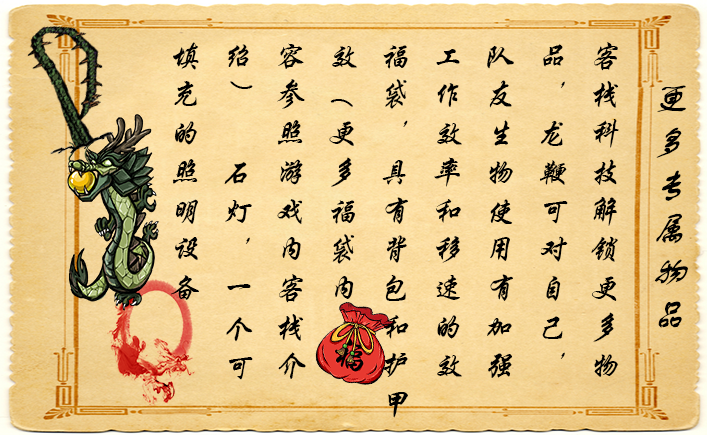 更多专属物品
客栈科技解锁更多物
品，龙鞭可对自己，
队友生物使用有加强
工作效率和移速的效
福袋，具有背包和护甲
效（更多福袋内
容参照游戏内客栈介
绍） 石灯，一个可
填充的照明设备
福